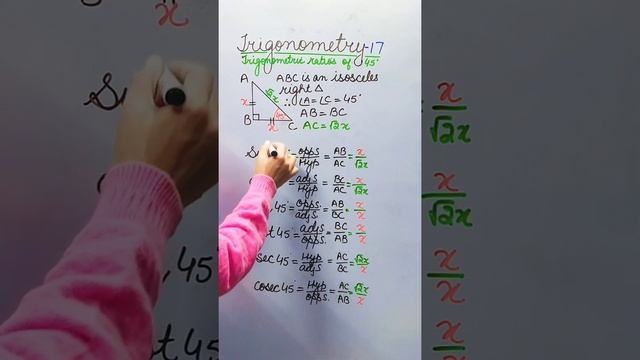 Trigonometry-17
Trigonometric ratios of 45°
A ABC is an isosceles
right Δ
√2x
∴ ∠A = ∠C = 45°
x
AB = BC
B x C AC = √2x
opps/Hyp = AB/AC = x/√2x
adjs/Hyp = BC/AC = x/√2x
45° = opps./adjs = AB/BC = x/x
45° = adjs/opps. = BC/AB = x/x
sec 45° = Hyp/adjs = AC/BC = √2x/x
cosec 45° = Hyp/opps. = AC/AB = √2x/x